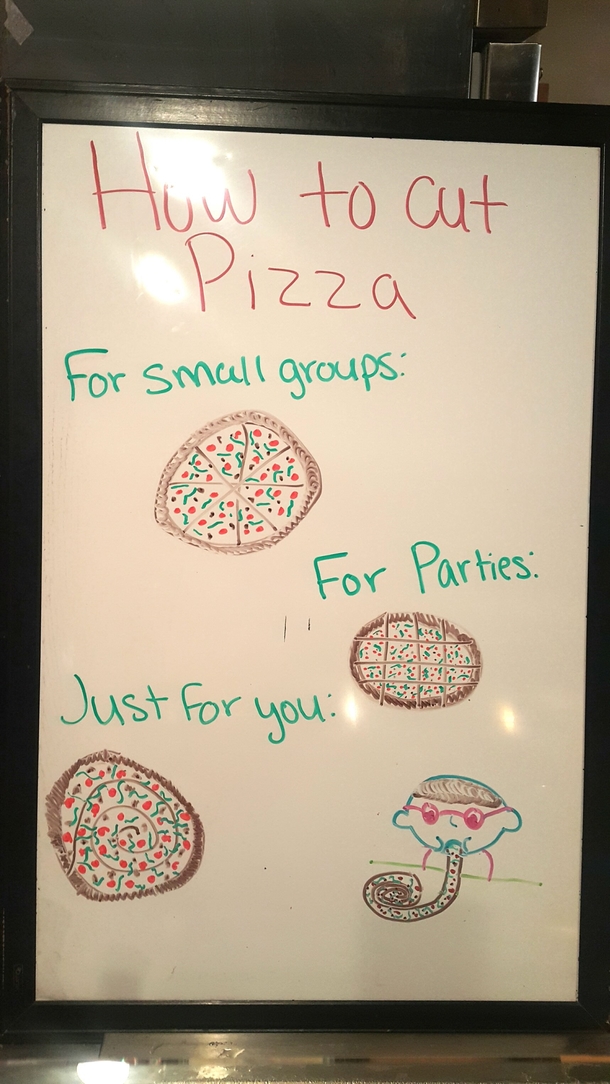 How to cut
Pizza
For small groups:
For Parties:
Just for you: